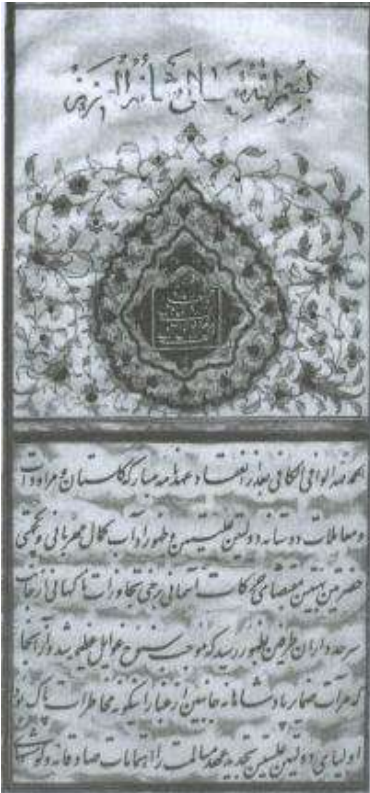 بسم الله تعالی شأنه العزیز
الحمدلله الوافی الکافی بعد از انعقاد عهدنامه مبارکه گلستان و مراودات
و معاملات دوستانه دولتین علیتین و ظهور آداب کمال مهربانی و یکجهتی
حضرتین بهیتین بمقتضای حرکات آسمانی برخی تجاوزات ناگهانی از جانب
سرحدداران طرفین بظهور رسید که موجب سنوح غوایل عظیمه شد و از آنجا
که مرآت ضمایر پادشاهانه جانبین از غبار اینگونه مخاطرات پاک بود
اولیای دولتین علیتین تجدید عهد مسالمت را اهتمامات صادقانه و کوششهای